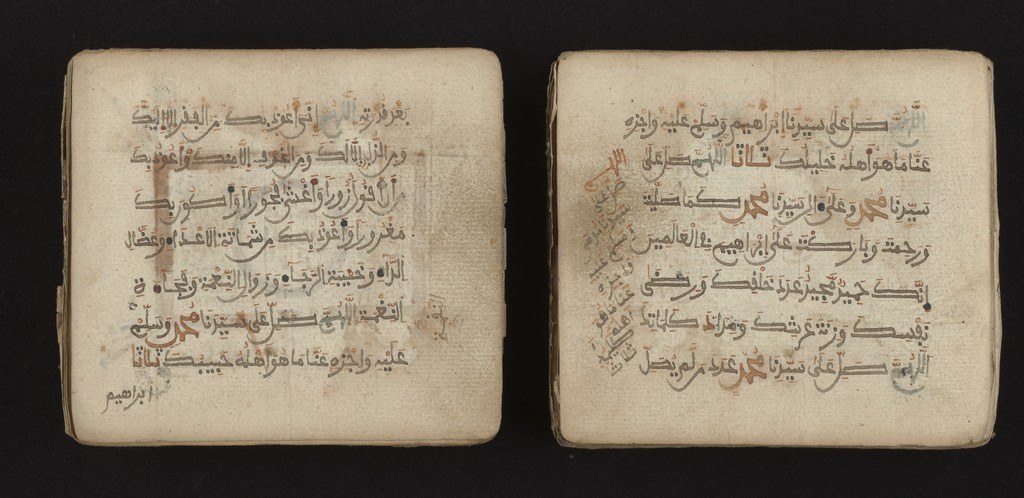 اللهم اني اعوذ بك من الفقر الا اليك
ومن الذل الا لك ومن الخوف الا منك واعوذ بك
من ان اقول زورا او اغشى فجورا او اكون بك
مغرورا واعوذ بك من شماتة الاعداء وعضال
الداء وخيبة الرجاء وزوال النعمة وفجاءة
النقمة اللهم صل على سيدنا محمد وسلم
عليه واجزه عنا ما هو اهله حبيبك ثلاثا
ابراهيم
اللهم صل على سيدنا ابراهيم وسلم عليه واجزه
عنا ما هو اهله خليلك ثلاثا اللهم صل على
سيدنا محمد وعلى ال سيدنا محمد كما صليت
ورحمت وباركت على ابراهيم في العالمين
انك حميد مجيد عدد خلقك ورضى
نفسك وزنة عرشك ومداد كلماتك
اللهم صل على سيدنا محمد عدد من لم يصل
اللهم
واجزه
عنا ما هو
اهله
ثلاثا